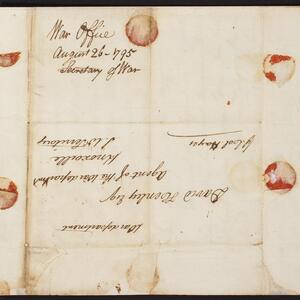 War Office
August 26—1795
Secretary of War
War department
David Henley Esqr
Agent of the War department
Knoxville
S. W. Territory